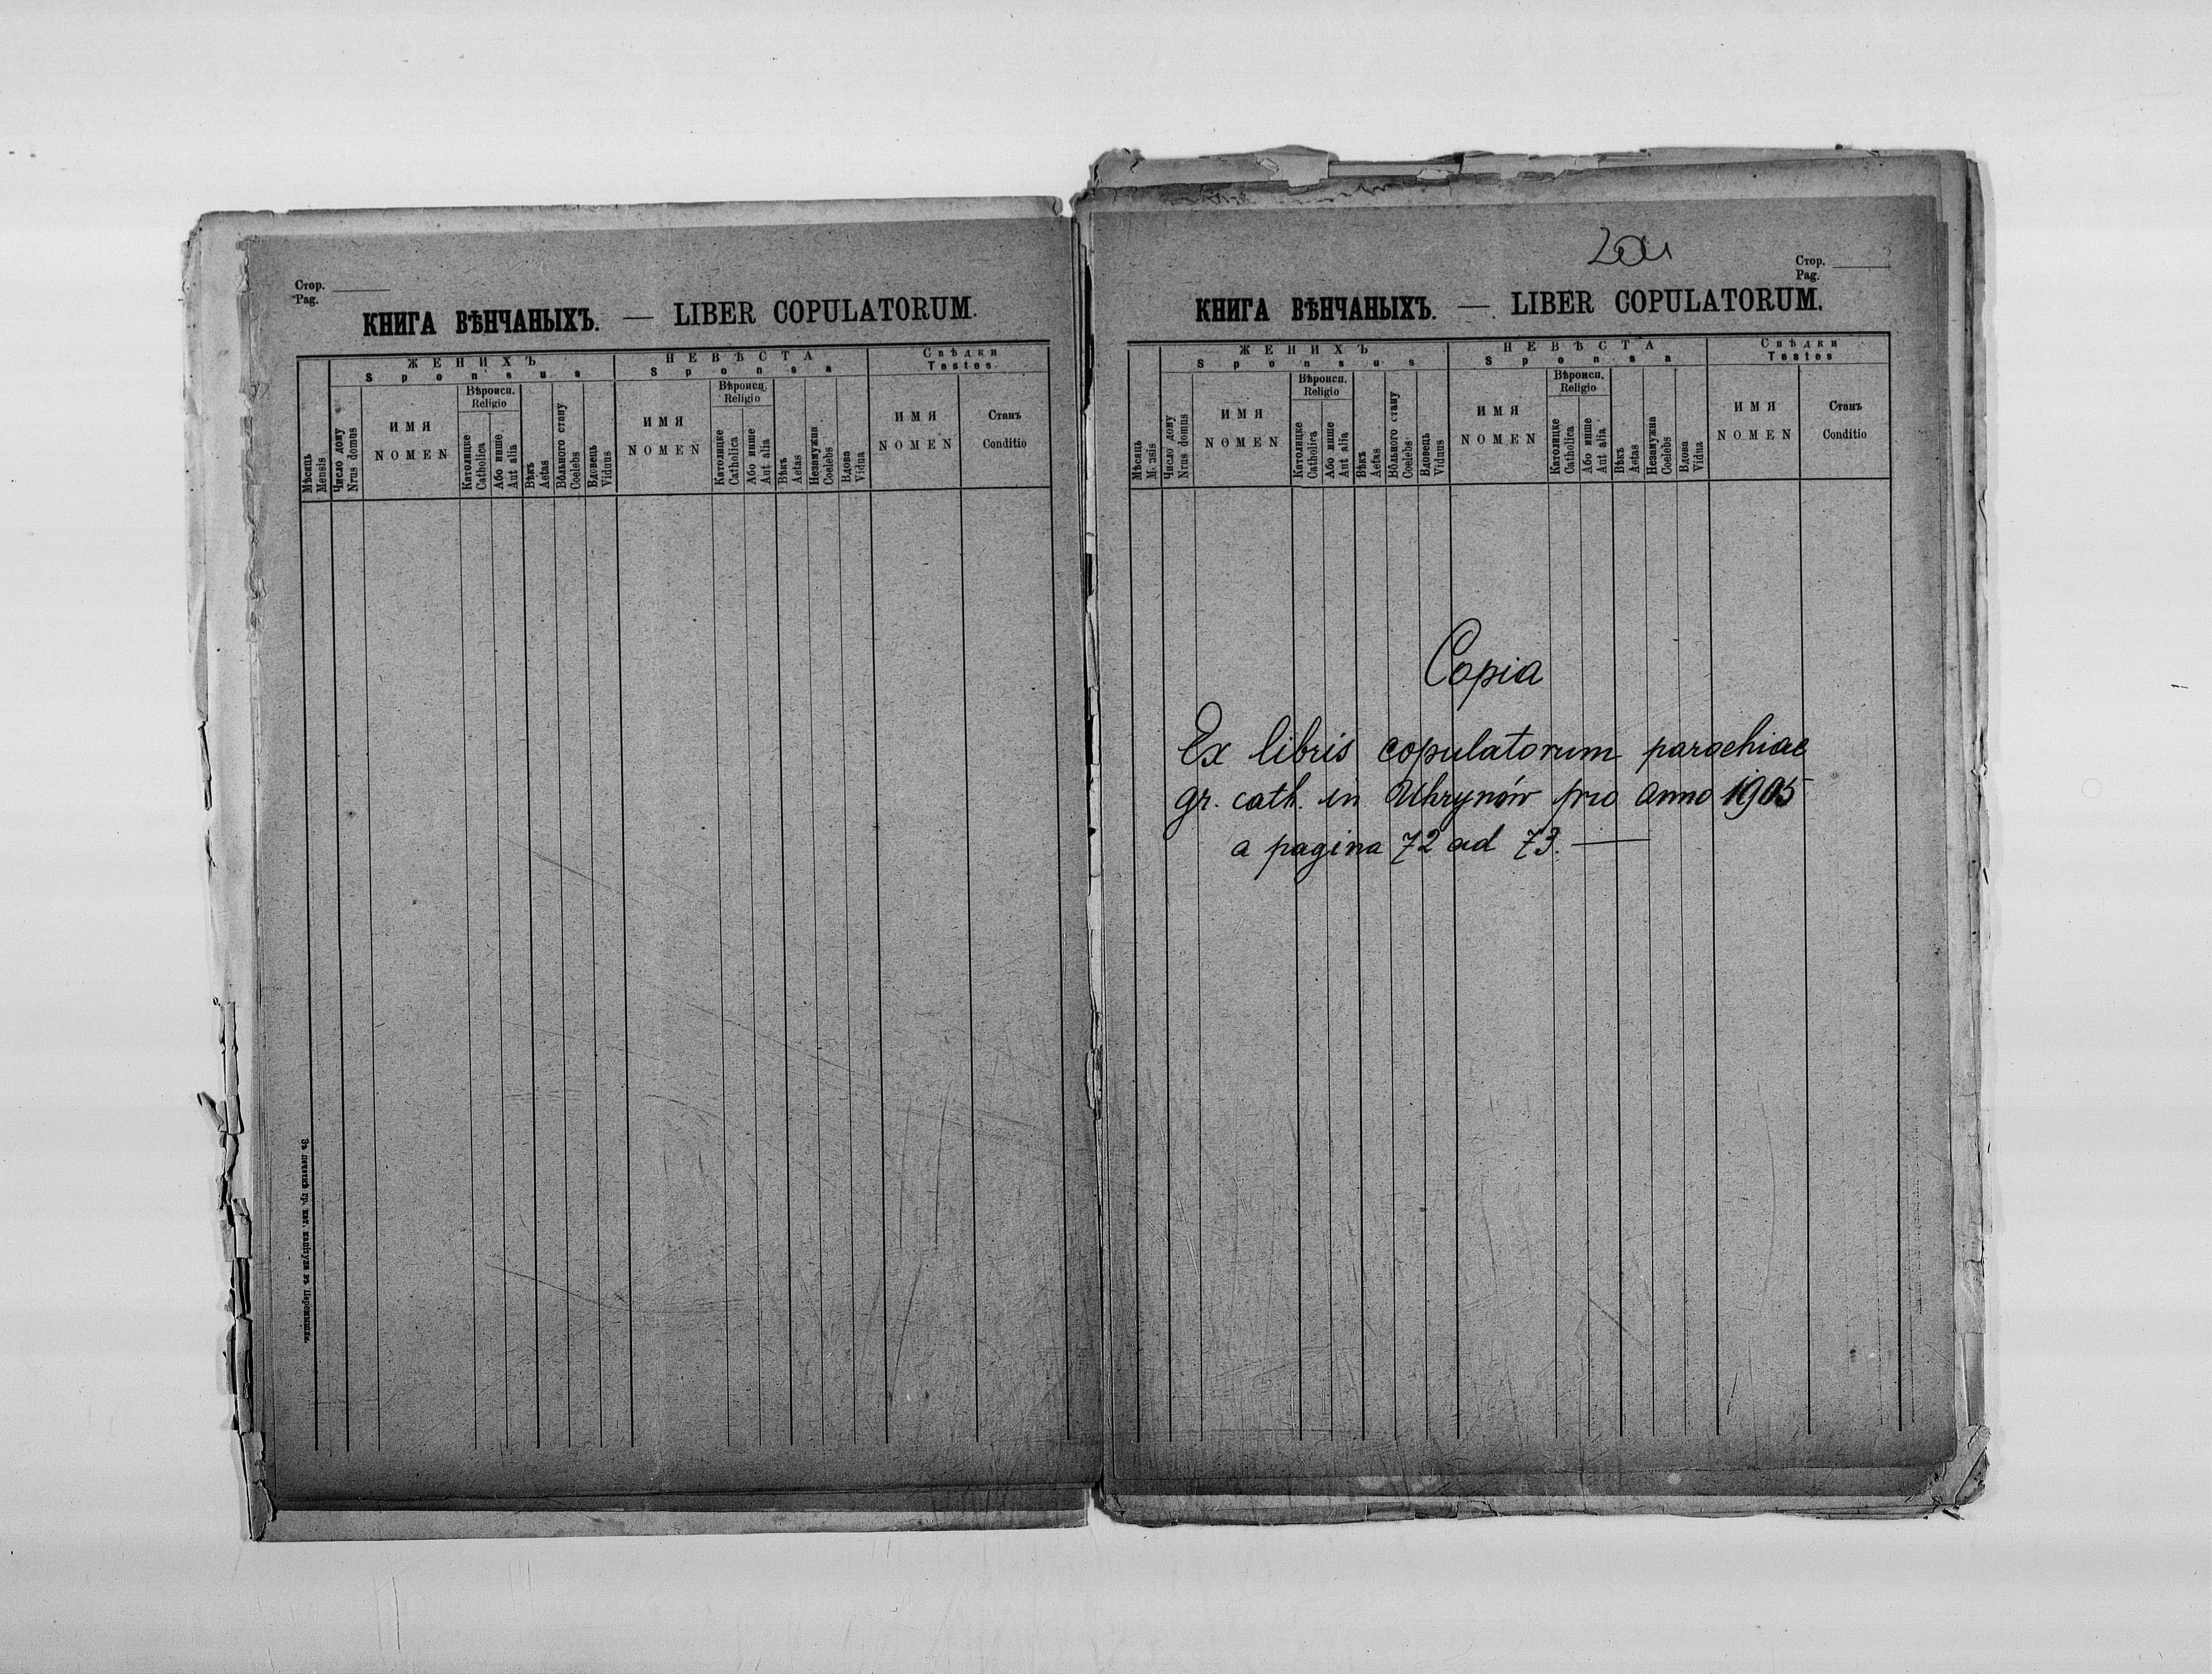 Стор.
Pag.
КНИГА ВѢНЧАНЫХЪ. — LIBER COPULATORUM.
Мѣсяць
Mensis
Число дому
Nrus domus
ЖЕНИХЪ
Sponsus
ИМЯ
NOMEN
Вѣроисп.
Religio
Католицке
Catholica
Або инше
Aut alia
Вѣкъ
Aetas
Вôльного стану
Coelebs
Вдовець
Viduus
НЕВѢСТА
Sponsa
ИМЯ
NOMEN
Вѣроисп.
Religio
Католицке
Catholica
Або инше
Aut alia
Вѣкъ
Aetas
Незамужна
Coelebs
Вдова
Vidua
Свѣдки
Testes
ИМЯ
NOMEN
Станъ
Conditio
Стор.
Pag.
КНИГА ВѢНЧАНЫХЪ. — LIBER COPULATORUM.
Мѣсяць
Mensis
Число дому
Nrus domus
ЖЕНИХЪ
Sponsus
ИМЯ
NOMEN
Вѣроисп.
Religio
Католицке
Catholica
Або инше
Aut alia
Вѣкъ
Aetas
Вôльного стану
Coelebs
Вдовець
Viduus
НЕВѢСТА
Sponsa
ИМЯ
NOMEN
Вѣроисп.
Religio
Католицке
Catholica
Або инше
Aut alia
Вѣкъ
Aetas
Незамужна
Coelebs
Вдова
Vidua
Свѣдки
Testes
ИМЯ
NOMEN
Станъ
Conditio
Copia
Ex libris copulatorum parochiae
gr. cath. in Uhrynów pro anno 1905
a pagina 72 ad 73. —